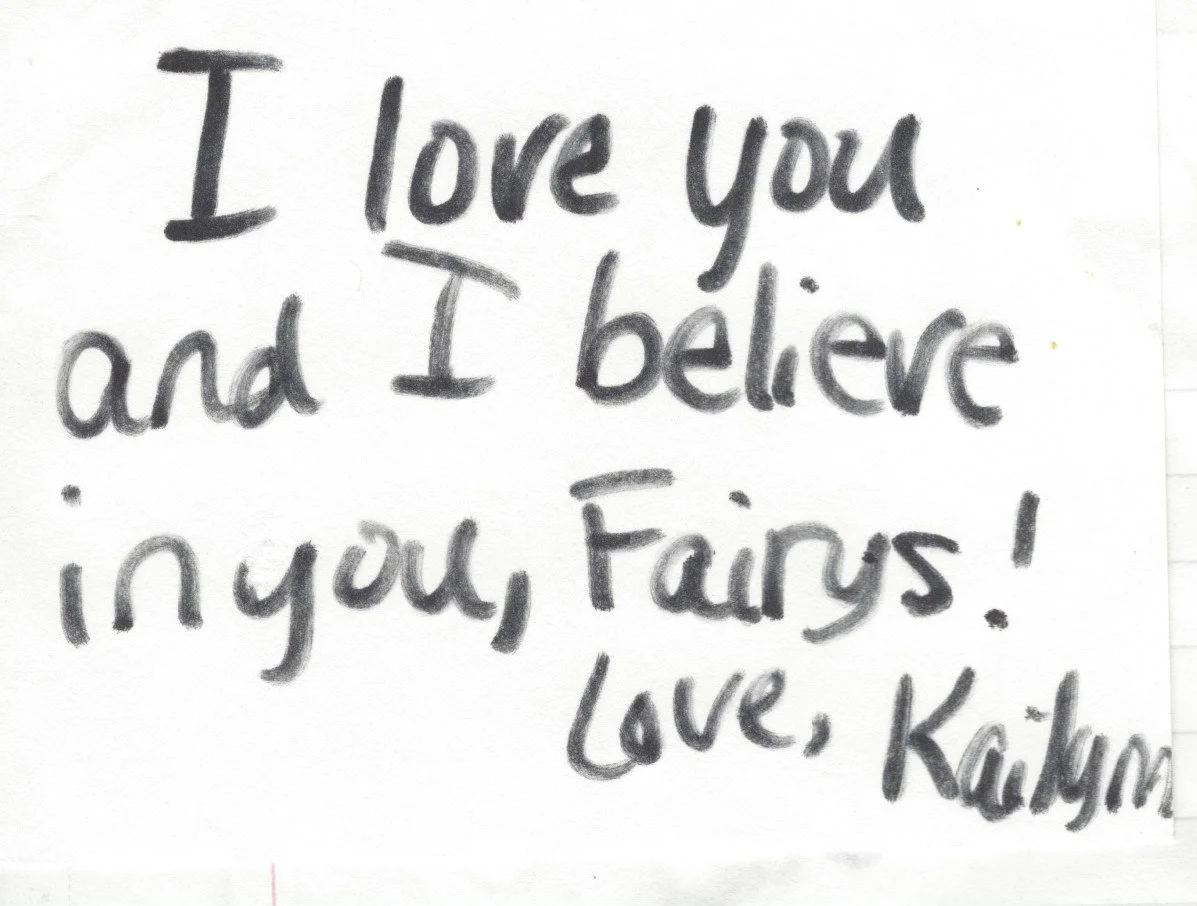 I love you
and I believe
in you, Fairys!
Love, Kailynn